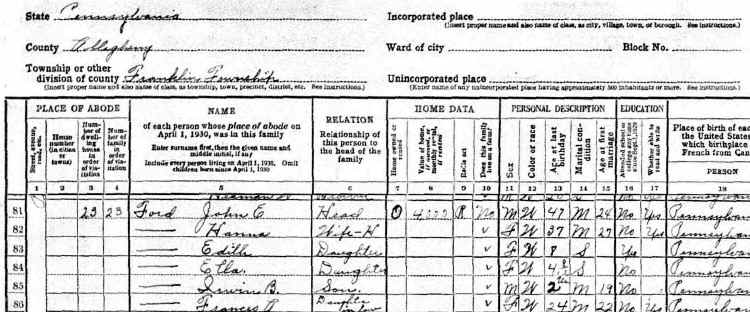 State Pennsylvania
Incorporated place
(Insert proper name and also name of class, as city, village, town, or borough. See instructions.)
County Allegheny
Ward of city
Block No.
Township or other
division of county Franklin Township
(Insert proper name and also name of class, as township, town, precinct, district, etc. See instructions.)
Unincorporated place
(Enter name of any unincorporated place having approximately 500 inhabitants or more. See instructions.)
PLACE OF ABODE
NAME
RELATION
HOME DATA
PERSONAL DESCRIPTION
EDUCATION
Street, avenue, road, etc.
House number (in cities or towns)
Number of dwelling house in order of visitation
Number of family in order of visitation
of each person whose place of abode on
April 1, 1930, was in this family
Enter surname first, then the given name and
middle initial, if any
Include every person living on April 1, 1930. Omit
children born since April 1, 1930
Relationship of
this person to
the head of the
family
Home owned or rented
Value of home, if owned, or monthly rental, if rented
Radio set
Does this family live on a farm?
Sex
Color or race
Age at last birthday
Marital condition
Age at first marriage
Attended school or college any time since Sept. 1, 1929
Whether able to read and write
Place of birth of eac
the United States
which birthplace
French from Can
PERSON
1 2 3 4 5 6 7 8 9 10 11 12 13 14 15 16 17 18
81 23 23 Ford John E Head O R No M W 47 M 24 No Yes Pennsylvan
82 Hanna Wife-H v F W 37 M 27 No Yes Pennsylvan
83 Edith Daughter v F W 8 S Yes Pennsylvan
84 Ella Daughter v F W S No Pennsylvan
85 Irwin B. Son v M W M 19 No Pennsylvan
86 Frances Daughter in law v F W 24 M 22 No Yes Pennsylvan